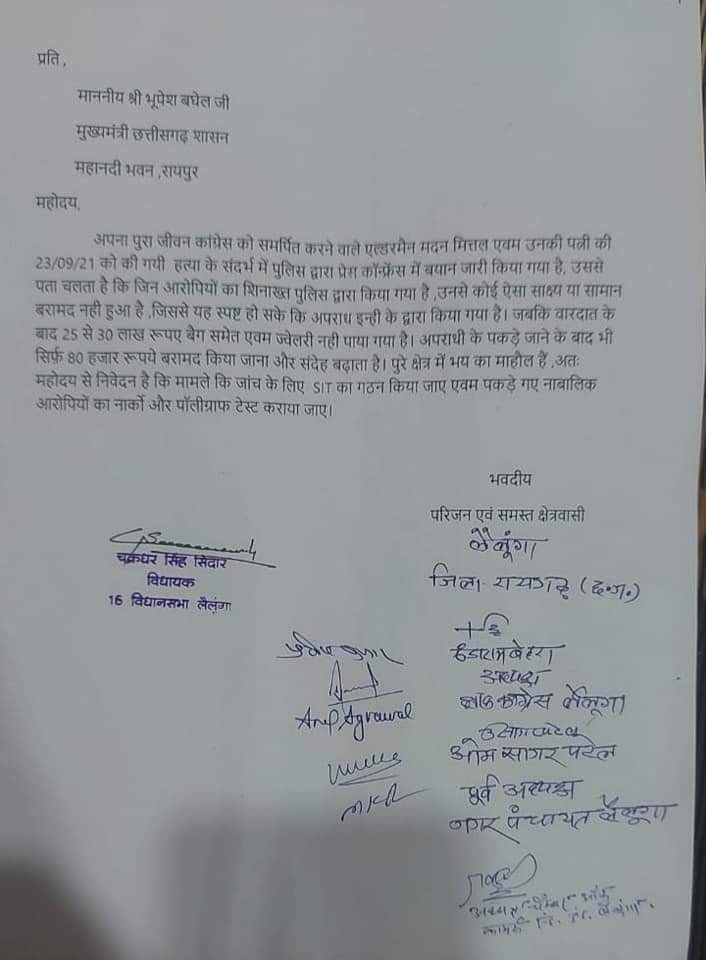 प्रति ,
माननीय श्री भूपेश बघेल जी
मुख्यमंत्री छत्तीसगढ़ शासन
महानदी भवन ,रायपुर
महोदय,
अपना पुरा जीवन कांग्रेस को समर्पित करने वाले एल्डरमैन मदन मित्तल एवम उनकी पत्नी की
23/09/21 को की गयी हत्या के संदर्भ में पुलिस द्वारा प्रेस कॉन्फ्रेंस में बयान जारी किया गया है, उससे
पता चलता है कि जिन आरोपियों का शिनाख्त पुलिस द्वारा किया गया है ,उनसे कोई ऐसा साक्ष्य या सामान
बरामद नही हुआ है ,जिससे यह स्पष्ट हो सके कि अपराध इन्ही के द्वारा किया गया है। जबकि वारदात के
बाद 25 से 30 लाख रूपए बैग समेत एवम ज्वेलरी नही पाया गया है। अपराधी के पकड़े जाने के बाद भी
सिर्फ 80 हजार रूपये बरामद किया जाना और संदेह बढ़ाता है। पुरे क्षेत्र में भय का माहौल हैं ,अतः
महोदय से निवेदन है कि मामले कि जांच के लिए SIT का गठन किया जाए एवम पकड़े गए नाबालिक
आरोपियों का नार्को और पॉलीग्राफ टेस्ट कराया जाए।
भवदीय
परिजन एवं समस्त क्षेत्रवासी
लैलूंगा
जिला- रायगढ़ (छ.ग.)
चक्रधर सिंह सिदार
विधायक
16 विधानसभा लैलूंगा
अध्यक्ष
ब्लाक कांग्रेस लैलूंगा
Anil Agrawal
ओम सागर पटेल
पूर्व अध्यक्ष
नगर पंचायत लैलूंगा